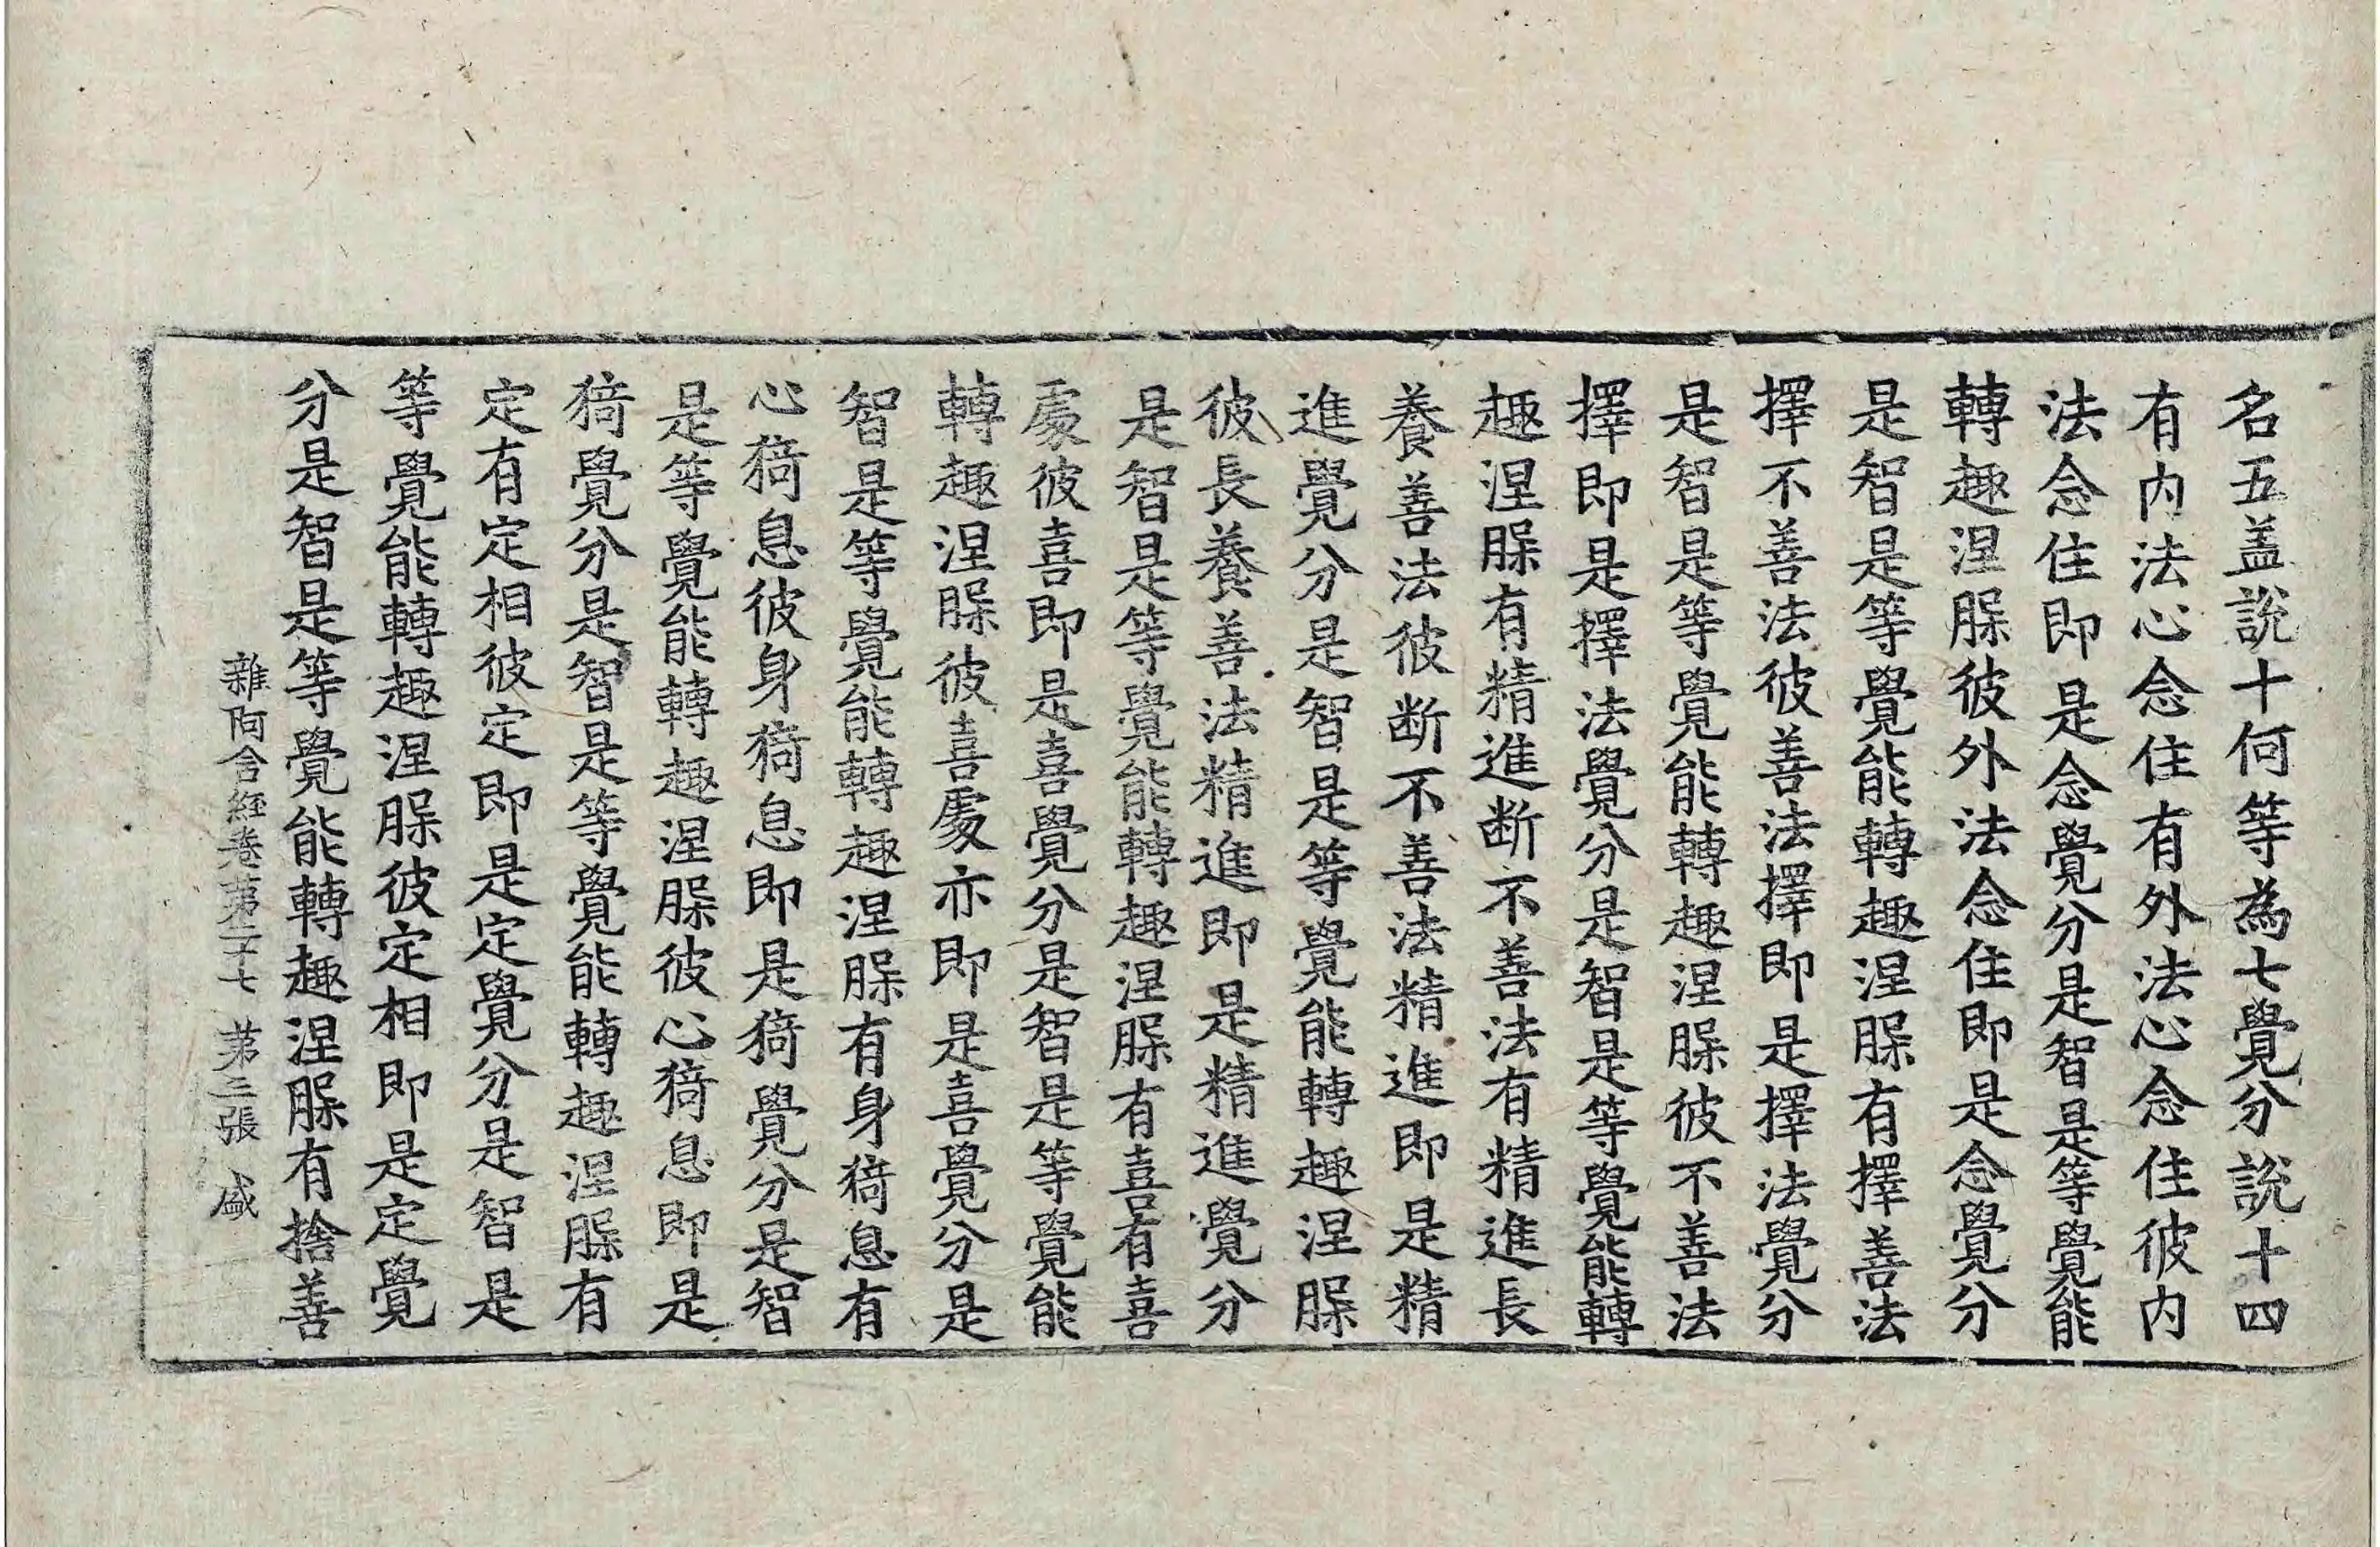 名五盖說十何等為七覺分說十四
有内法心念住有外法心念住彼内
法念住即是念覺分是智是等覺能
轉趣涅槃彼外法念住即是念覺分
是智是等覺能轉趣涅槃有擇善法
擇不善法彼善法擇即是擇法覺分
是智是等覺能轉趣涅槃彼不善法
擇即是擇法覺分是智是等覺能轉
趣涅槃有精進断不善法有精進長
養善法彼断不善法精進即是精
進覺分是智是等覺能轉趣涅槃
彼長養善法精進即是精進覺分
是智是等覺能轉趣涅槃有喜有喜
處彼喜即是喜覺分是智是等覺能
轉趣涅槃彼喜處亦即是喜覺分是
智是等覺能轉趣涅槃有身猗息有
心猗息彼身猗息即是猗覺分是智
是等覺能轉趣涅槃彼心猗息即是
猗覺分是智是等覺能轉趣涅槃有
定有定相彼定即是定覺分是智是
等覺能轉趣涅槃彼定相即是定覺
分是智是等覺能轉趣涅槃有捨善
雜阿含經卷第二十七 第三張 盛